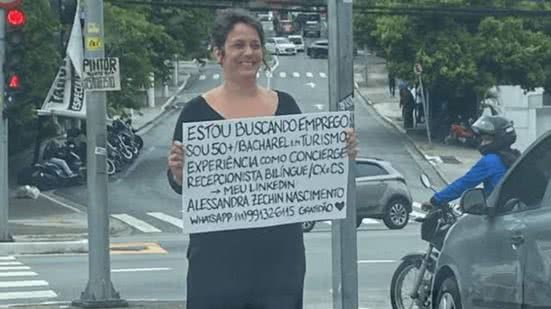 ESTOU BUSCANDO EMPREGO
SOU 50+/BACHAREL EM TURISMO
EXPERIÊNCIA COMO CONCIERGE
RECEPCIONISTA BILÍNGUE/CX e CS
→ MEU LINKEDIN
ALESSANDRA ZECHIN NASCIMENTO
WHATSAPP (11) 991326115 GRATIDÃO
PINTOR